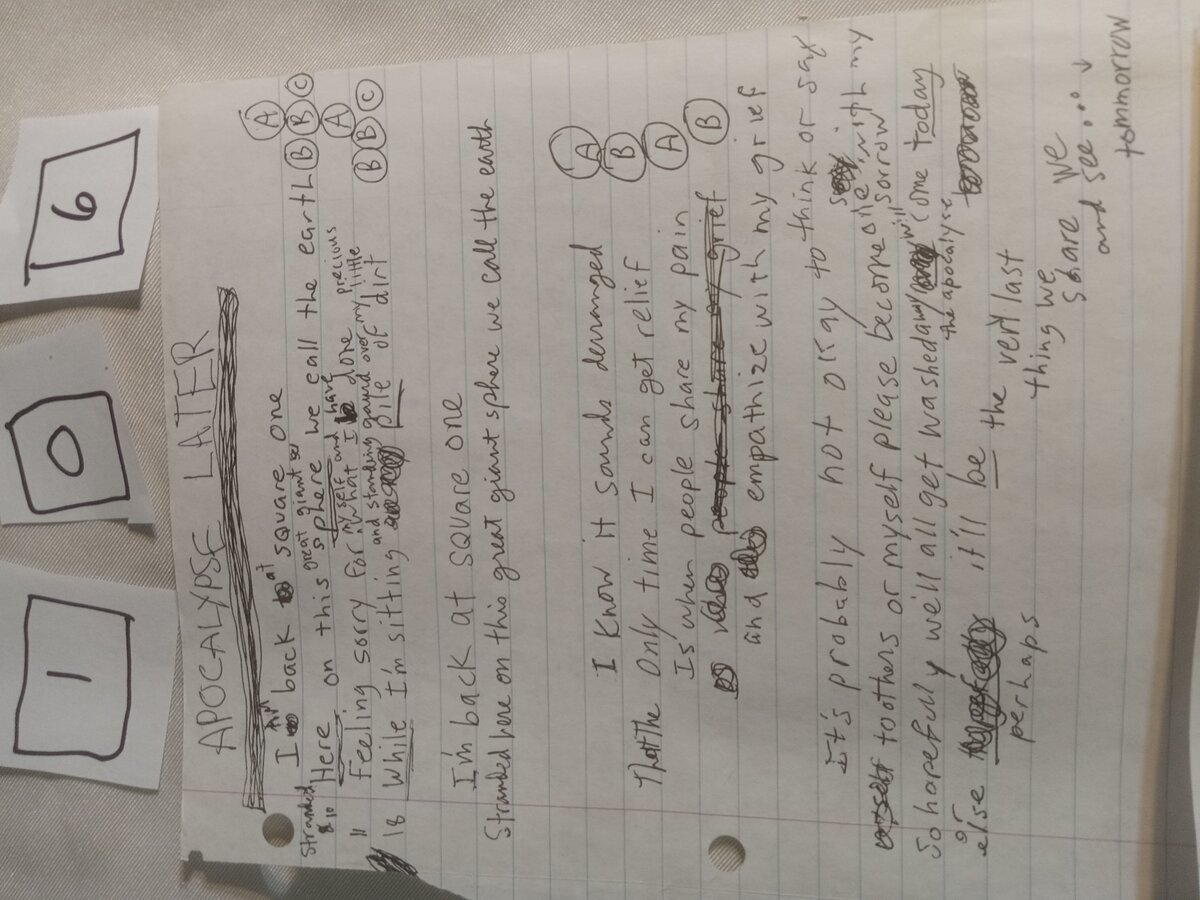 1
0
6
APOCALYPSE LATER
I Am back at square one
Stranded Here on this great giant sphere we call the earth
A
B B C
Feeling sorry for myself and what I have done
A
and standing gaurd over my precious little
While I'm sitting pile of dirt
B B C
I'm back at square one
Stranded here on this great giant sphere we call the earth
I know it sounds derranged
A
That the Only time I can get relief
B
Is when people share my pain
A
people share my grief
B
and empathize with my grief
It's probably not okay to think or say
to others or myself please become one with my sorrow
So hopefully we'll all get washed away will come today
the apocalypse
or else it'll be the very last
perhaps
thing we
share we
and see...
tommorrow